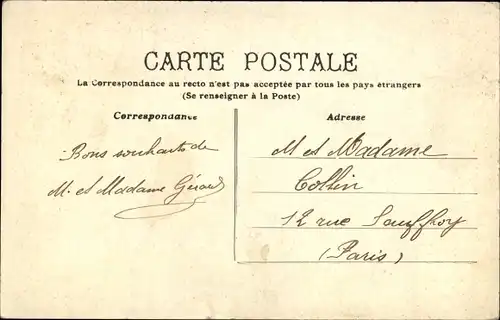 CARTE POSTALE
La Correspondance au recto n'est pas acceptée par tous les pays étrangers
(Se renseigner à la Poste)
Correspondance
Bons souhaits de
M. et Madame Gérard
Adresse
M et Madame
Collin
12 rue Jouffroy
(Paris)